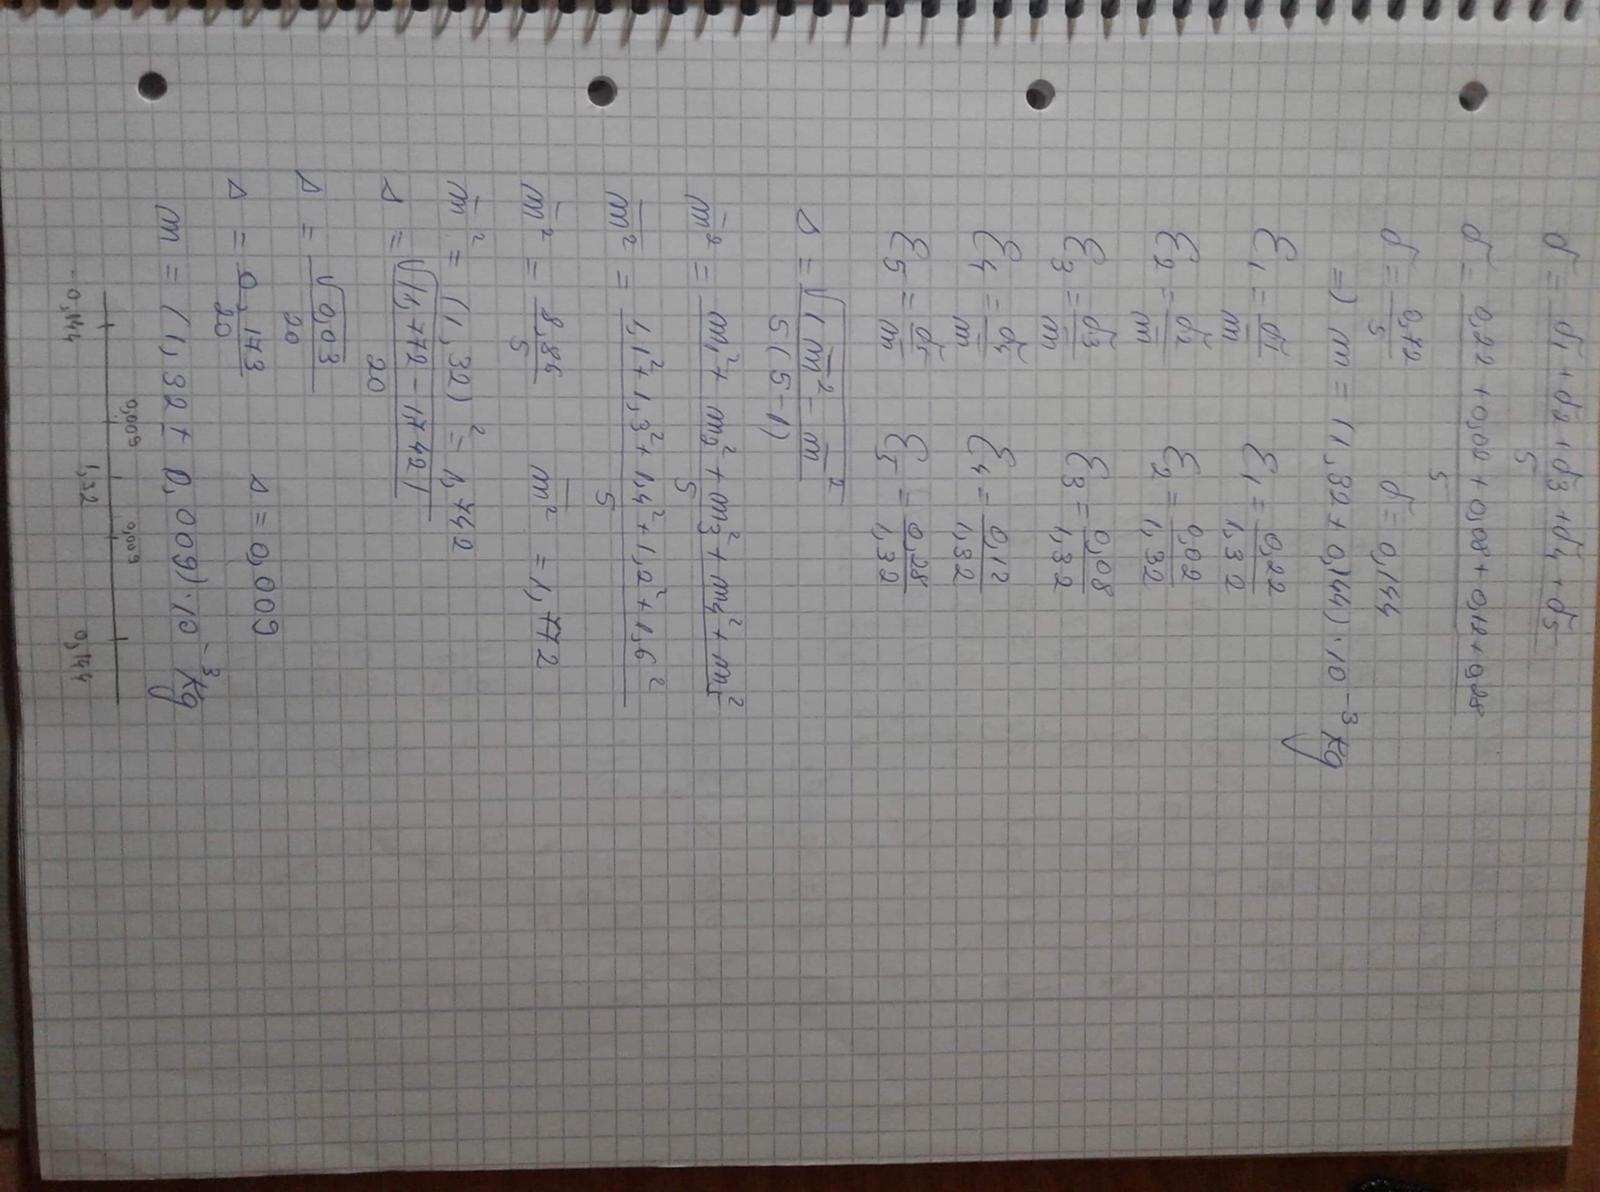 δ = δ1 + δ2 + δ3 + δ4 + δ5 / 5
δ = 0,22 + 0,02 + 0,08 + 0,12 + 0,28 / 5
δ = 0,72 / 5   δ = 0,144
=> m = (1,32 ± 0,144) · 10⁻³ kg
ε1 = δ1 / m̅   ε1 = 0,22 / 1,32
ε2 = δ2 / m̅   ε2 = 0,02 / 1,32
ε3 = δ3 / m̅   ε3 = 0,08 / 1,32
ε4 = δ4 / m̅   ε4 = 0,12 / 1,32
ε5 = δ5 / m̅   ε5 = 0,28 / 1,32
Δ = √|m̅² - m̅²| / 5(5-1)
m̅² = m1² + m2² + m3² + m4² + m5² / 5
m̅² = 1,1² + 1,3² + 1,4² + 1,2² + 1,6² / 5
m̅² = 8,86 / 5   m̅² = 1,772
m̅² = (1,32)² = 1,742
Δ = √|1,772 - 1,742| / 20
Δ = √0,03 / 20
Δ = 0,173 / 20   Δ = 0,009
m = (1,32 ± 0,009) · 10⁻³ kg
0,009   0,009
-0,144   1,32   0,144